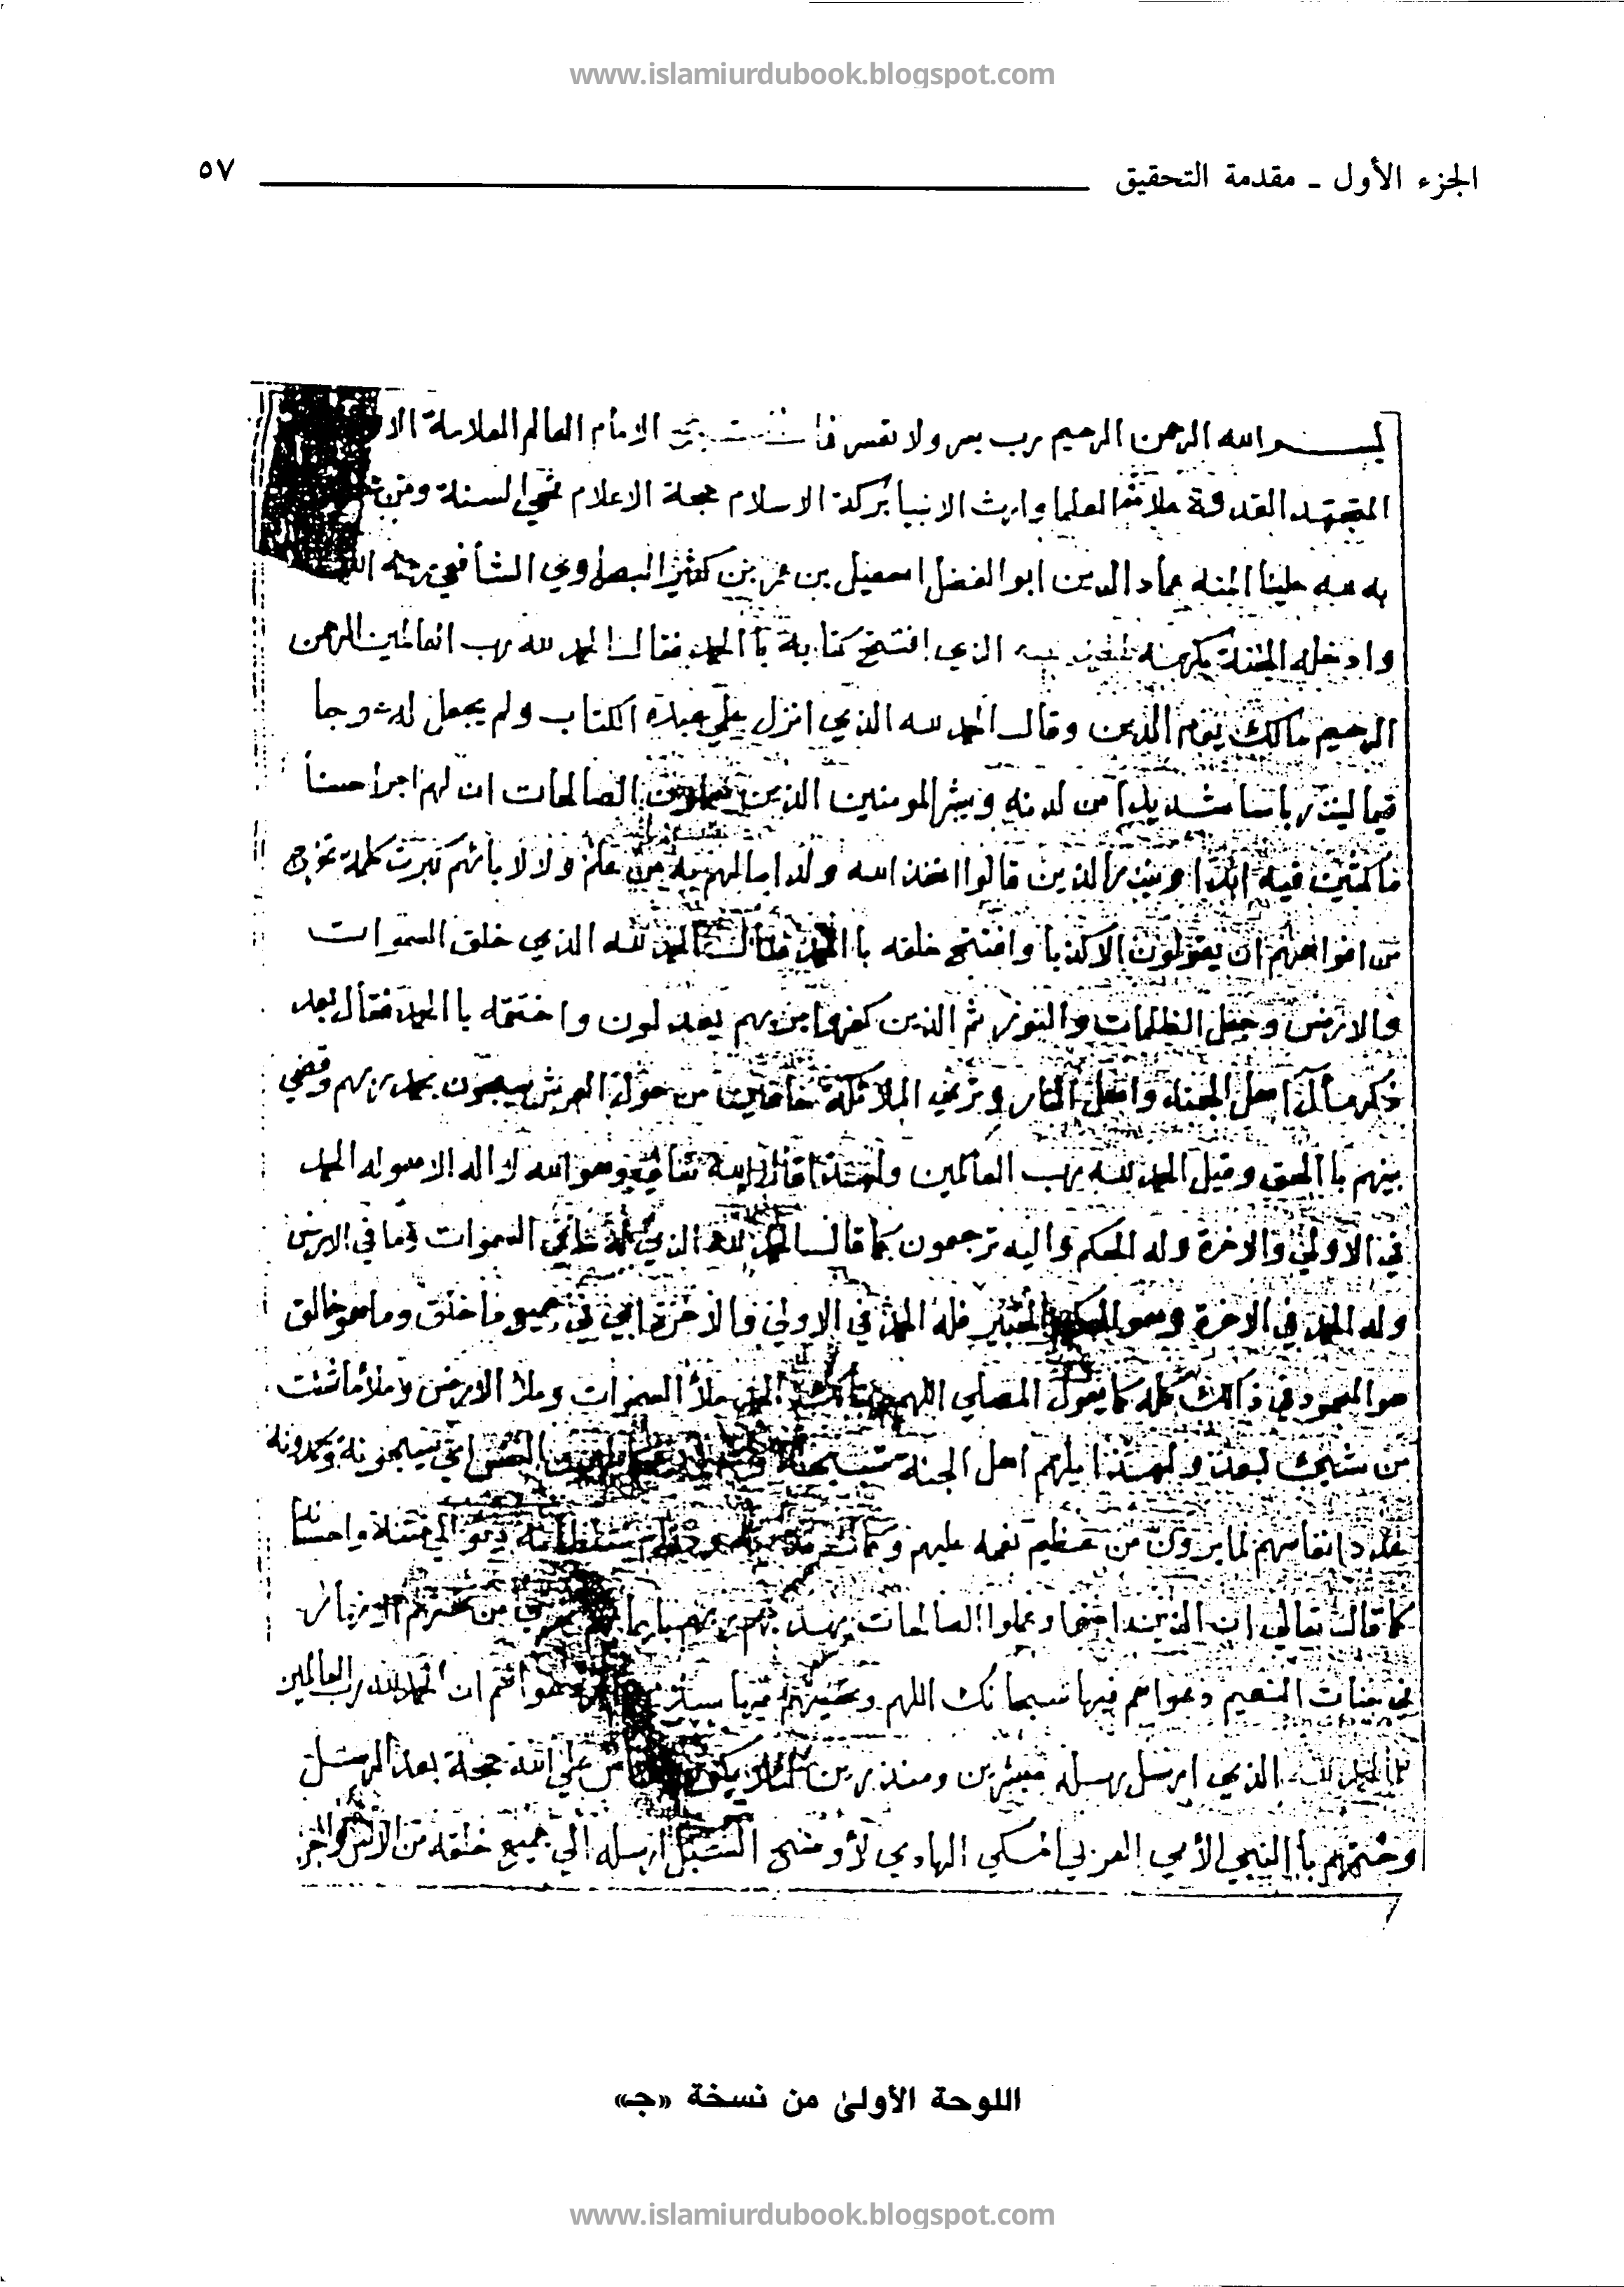 www.islamiurdubook.blogspot.com
الجزء الأول ـ مقدمة التحقيق ٥٧
بسم الله الرحمن الرحيم رب يسر ولا تعسر الامام العالم العلامة
المجتهد القدوة العلما وارث الانبيا بركة الاسلام حجة الاعلام محي السنة ومن
به علينا المنه عماد الدين ابو الفضل اسمعيل بن عمر بن كثير البصراوي الشافعي
وادخله الجنة بكرمه الذي افتتح كتابه باالحمد فقال الحمد لله رب العالمين الرحمن
الرحيم مالك يوم الدين وقال الحمد لله الذي انزل علي عبده الكتاب ولم يجعل له عوجا
قيما لينذر باسا شديدا من لدنه ويبشر المومنين الذين يعملون الصالحات ان لهم اجرا حسنا
ماكثين فيه ابدا وينذر الذين قالوا اتخذ الله ولدا مالهم به من علم ولا لابائهم كبرت كلمة تخرج
من افواههم ان يقولون الا كذبا وافتتح خلقه باالحمد فقال الحمد لله الذي خلق السموات
والارض وجعل الظلمات والنور ثم الذين كفروا بربهم يعدلون واختتمه باالحمد فقال بعد
ذكر مآل اهل الجنة واهل النار وتري الملائكة حافين من حول العرش يسبحون بحمد ربهم وقضي
بينهم باالحق وقيل الحمد لله رب العالمين ولهذا قال الله تعالي وهو الله لا اله الا هو له الحمد
في الاولي والاخرة وله الحكم واليه ترجعون كما قال الحمد لله الذي له ما في السموات وما في الارض
وله الحمد في الاخرة وهو الحكيم الخبير فله الحمد في الاولي والاخرة اي في جميع ما خلق وما هو خالق
هو المحمود في ذالك كله كما يقول المصلي اللهم ربنا لك الحمد ملأ السموات وملأ الارض وملأ ما شئت
من شيئ بعد ولهذا يلهم اهل الجنة تسبيحه النفس اي يسبحونه ويحمدونه
عدد انفاسهم لما يرون من عظيم نعمه عليهم وعظيم سلطانه وتوالي مننه واحسانه
كما قال تعالي ان الذين امنوا وعملوا الصالحات يهديهم ربهم بايمانهم تجري من تحتهم الانهار
في جنات النعيم دعواهم فيها سبحانك اللهم وتحيتهم فيها سلام دعواهم ان الحمد لله رب العالمين
الحمد لله الذي ارسل رسله مبشرين ومنذرين لئلا يكون للناس علي الله حجة بعد الرسل
وختمهم باالنبي الأمي العربي المكي الهادي لأوضح السبل ارسله الي جميع خلقه من الانس والجن
اللوحة الأولىٰ من نسخة «جـ»
www.islamiurdubook.blogspot.com